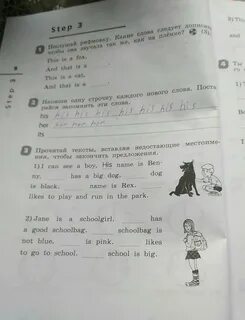 Step 3
Послушай рифмовку. Какие слова следует дописать,
чтобы она звучала так же, как на плёнке? (8)
This is a fox.
And that is a
This is a cat.
And that is a
Step 3
Напиши одну строчку каждого нового слова. Поста-
райся запомнить эти слова.
his his his his his his his
her her her her
its
Прочитай тексты, вставляя недостающие местоиме-
ния, чтобы закончить предложения.
1) I can see a boy. His name is Ben-
ny. has a big dog. dog
is black. name is Rex.
likes to play and run in the park.
2) Jane is a schoolgirl. has
a good schoolbag. schoolbag is
not blue. is pink. likes
to go to school. school is big.